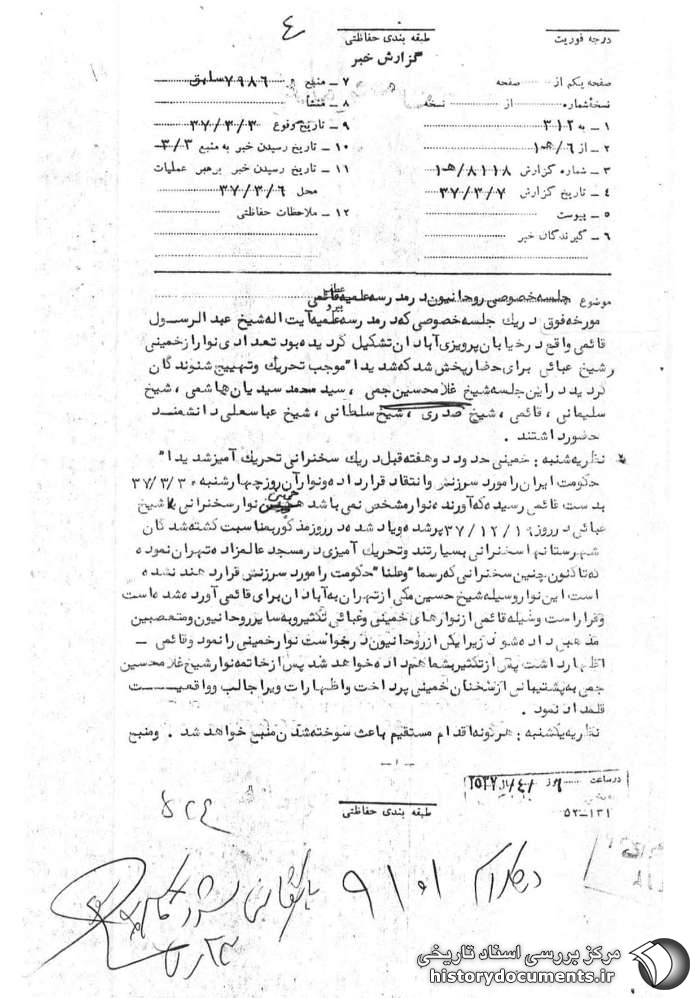 ٤
درجه فوریت
طبقه بندی حفاظتی
گزارش خبر
صفحه یکم از صفحه
نسخه شماره از نسخه
۱ ـ به ۳۱۲
۲ ـ از ۶/هـ۱
۳ ـ شماره گزارش ۸۱۱۸/هـ۱
۴ ـ تاریخ گزارش ۳۷/۳/۷
۵ ـ پیوست
۶ ـ گیرندگان خبر
۷ ـ منبع ۷۹۸۶ سابق
۸ ـ منشأ
۹ ـ تاریخ وقوع ۳۷/۳/۳
۱۰ ـ تاریخ رسیدن خبر به منبع ۳/۳
۱۱ ـ تاریخ رسیدن خبر برهبر عملیات
محل ۳۷/۳/۶
۱۲ ـ ملاحظات حفاظتی
موضوع جلسه خصوصی روحانیون در مدرسه علمیه قائمی
مورخه فوق در یک جلسه خصوصی که در مدرسه علمیه آیت اله شیخ عبدالرسول
قائمی واقع در خیابان پرویزی آبادان تشکیل گردیده بود تعدادی نوار از خمینی
و شیخ عبائی برای حضار پخش شد که شدیدا" موجب تحریک و تهییج شنوندگان
گردید در این جلسه شیخ غلامحسین جمی ، سید محمد سیدیان هاشمی ، شیخ
سلیمانی ، قائمی ، شیخ صدری ، شیخ سلطانی ، شیخ عباسعلی دانشمند
حضور داشتند .
نظریه شنبه : خمینی حدود دو هفته قبل در یک سخنرانی تحریک آمیز شدیدا"
حکومت ایران را مورد سرزنش و انتقاد قرار داده و نوار آن روز چهارشنبه ۳۷/۳/۳
بدست قائمی رسیده که آورنده نوار مشخص نمی باشد نوار سخنرانی شیخ
عبائی در روز ۳۷/۱۲/۱۹ پر شده و یاد شده در روز مذکور بمناسبت کشته شدگان
شهرستانها سخنرانی بسیار تند و تحریک آمیزی در مسجد عالمزاده تهران نموده
که تاکنون چنین سخنرانی که رسما" و علنا" حکومت را مورد سرزنش قرار دهند نشده
است این نوار وسیله شیخ حسین مکی از تهران به آبادان برای قائمی آورده شده است
و قرار است وسیله قائمی از نوارهای خمینی و عبائی تکثیر و به سایر روحانیون و متعصبین
مذهبی داده شود زیرا یکی از روحانیون درخواست نوار خمینی را نمود و قائمی ـ
اظهار داشت پس از تکثیر بشما هم داده خواهد شد پس از خاتمه نوار شیخ غلامحسین
جمی به پشتیبانی از سخنان خمینی پرداخت و اظهارات ویرا جالب و واقعیت
قلمداد نمود .
نظریه یکشنبه : هرگونه اقدام مستقیم باعث سوخته شدن منبع خواهد شد . و منبع
ـ ۱ ـ
در ساعت روز
طبقه بندی حفاظتی
۵۲-۱۳۱
مرکز بررسی اسناد تاریخی
historydocuments.ir